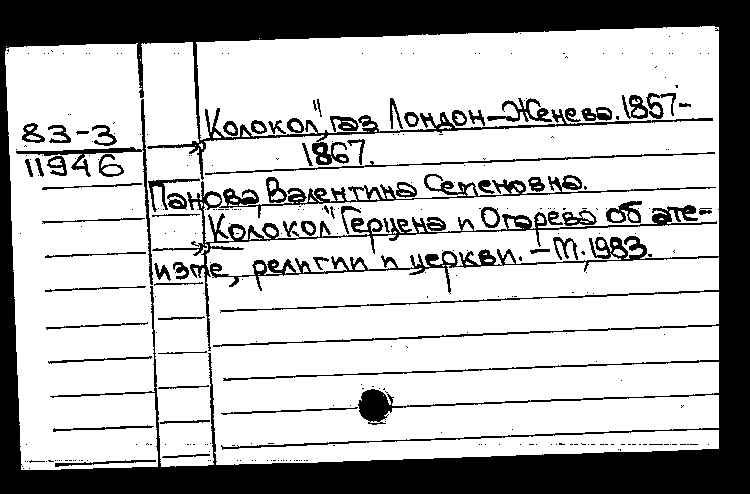 83-3
11946
„Колокол", газ Лондон-Женева. 1857-
1867.
Панова, Валентина Семеновна.
„Колокол" Герцена и Огарева об ате-
изме, религии и церкви. – М., 1983.